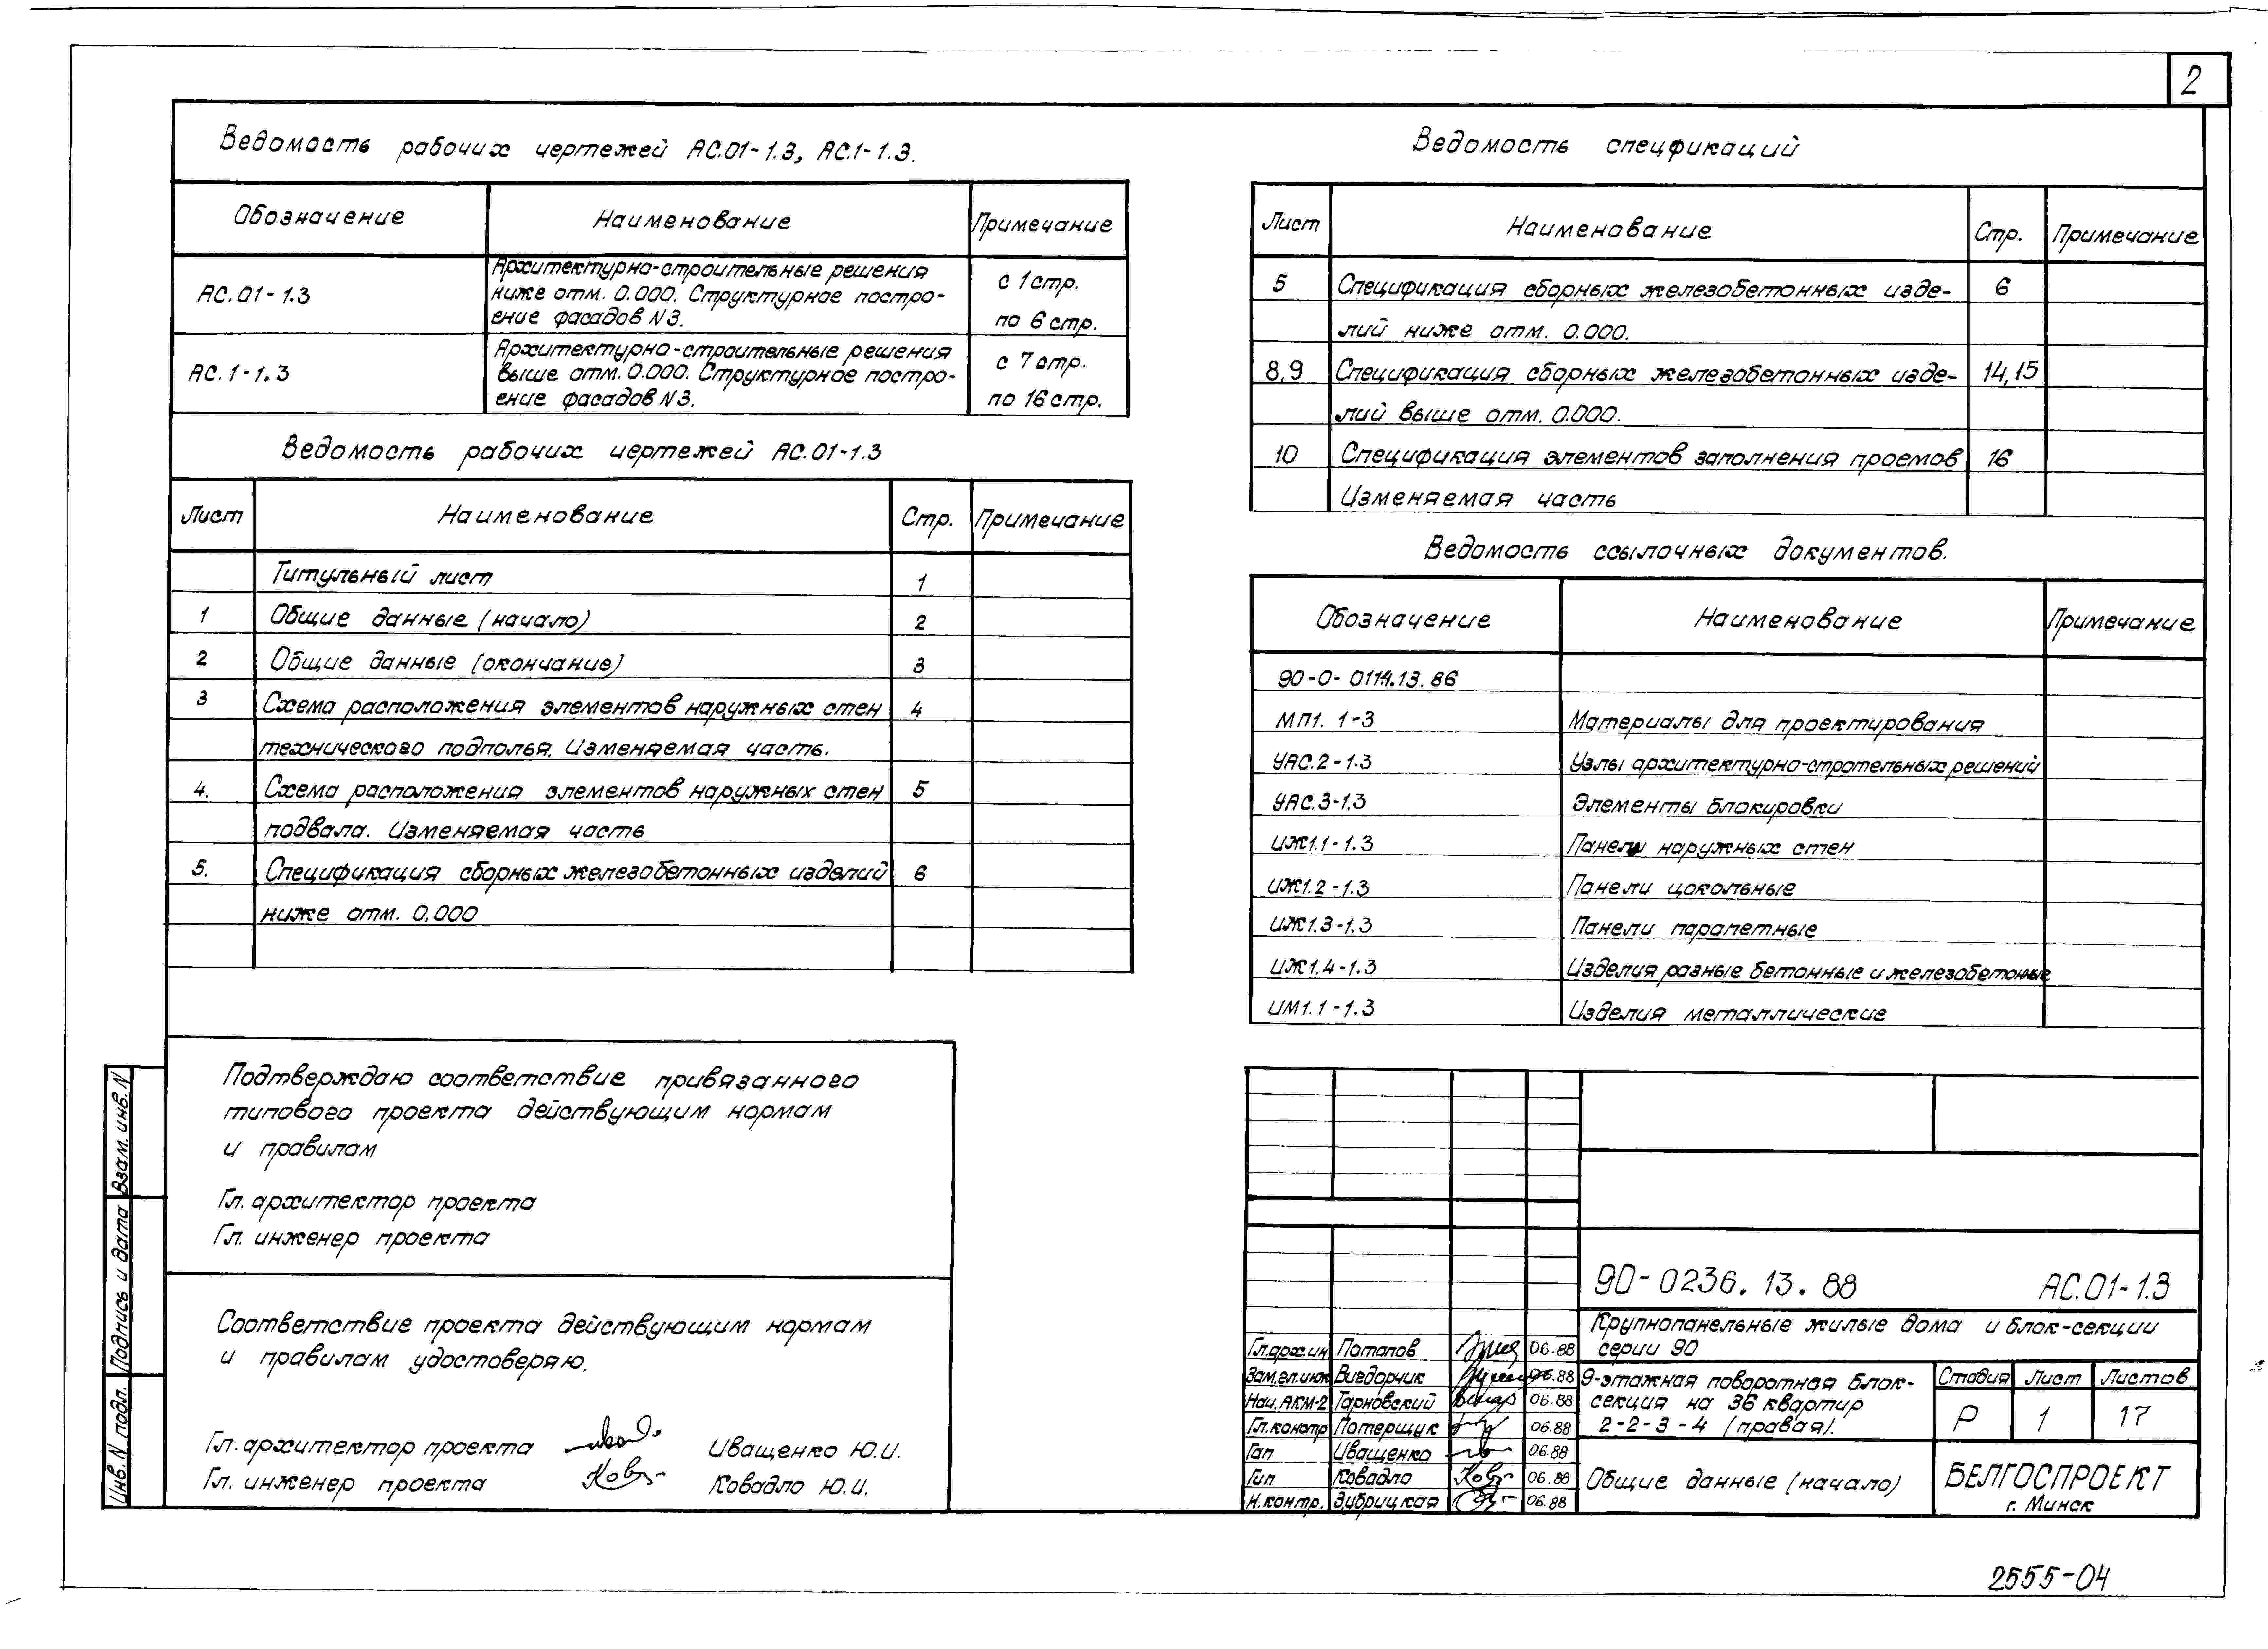 2
Ведомость рабочих чертежей АС.01-1.3, АС.1-1.3.
Обозначение Наименование Примечание
АС.01-1.3 Архитектурно-строительные решения ниже отм. 0.000. Структурное постро- с 1 стр.
ение фасадов N3. по 6 стр.
АС.1-1.3 Архитектурно-строительные решения выше отм. 0.000. Структурное постро- с 7 стр.
ение фасадов N3. по 16 стр.
Ведомость рабочих чертежей АС.01-1.3
Лист Наименование Стр. Примечание
Титульный лист 1
1 Общие данные (начало) 2
2 Общие данные (окончание) 3
3 Схема расположения элементов наружных стен 4
технического подполья. Изменяемая часть.
4. Схема расположения элементов наружных стен 5
подвала. Изменяемая часть
5. Спецификация сборных железобетонных изделий 6
ниже отм. 0,000
Подтверждаю соответствие привязанного
типового проекта действующим нормам
и правилам
Гл. архитектор проекта
Гл. инженер проекта
Соответствие проекта действующим нормам
и правилам удостоверяю.
Гл. архитектор проекта Иващенко Ю.И.
Гл. инженер проекта Ковадло Ю.И.
Инв. N подл. Подпись и дата Взам. инв. N
Ведомость спецфикаций
Лист Наименование Стр. Примечание
5 Спецификация сборных железобетонных изде- 6
лий ниже отм. 0.000.
8,9 Спецификация сборных железобетонных изде- 14,15
лий выше отм. 0.000.
10 Спецификация элементов заполнения проемов 16
Изменяемая часть
Ведомость ссылочных документов.
Обозначение Наименование Примечание
90-0-0114.13.86
МП1.1-3 Материалы для проектирования
УАС.2-1.3 Узлы архитектурно-стротельных решений
УАС.3-1.3 Элементы блокировки
ИЖ1.1-1.3 Панели наружных стен
ИЖ1.2-1.3 Панели цокольные
ИЖ1.3-1.3 Панели парапетные
ИЖ1.4-1.3 Изделия разные бетонные и железобетонные
ИМ1.1-1.3 Изделия металлические
90-0236.13.88 АС.01-1.3
Крупнопанельные жилые дома и блок-секции
серии 90
Гл.архин Потапов 06.88
Зам.гл.инж Вигдорчик 06.88
Нач.АКМ-2 Тарновский 06.88
Гл.констр Потерщук 06.88
Гап Иващенко 06.88
Гип Ковадло 06.88
Н.контр. Зубрицкая 06.88
9-этажная поворотная блок-
секция на 36 квартир
2-2-3-4 (правая).
Стадия Лист Листов
Р 1 17
Общие данные (начало)
БЕЛГОСПРОЕКТ
г. Минск
2555-04